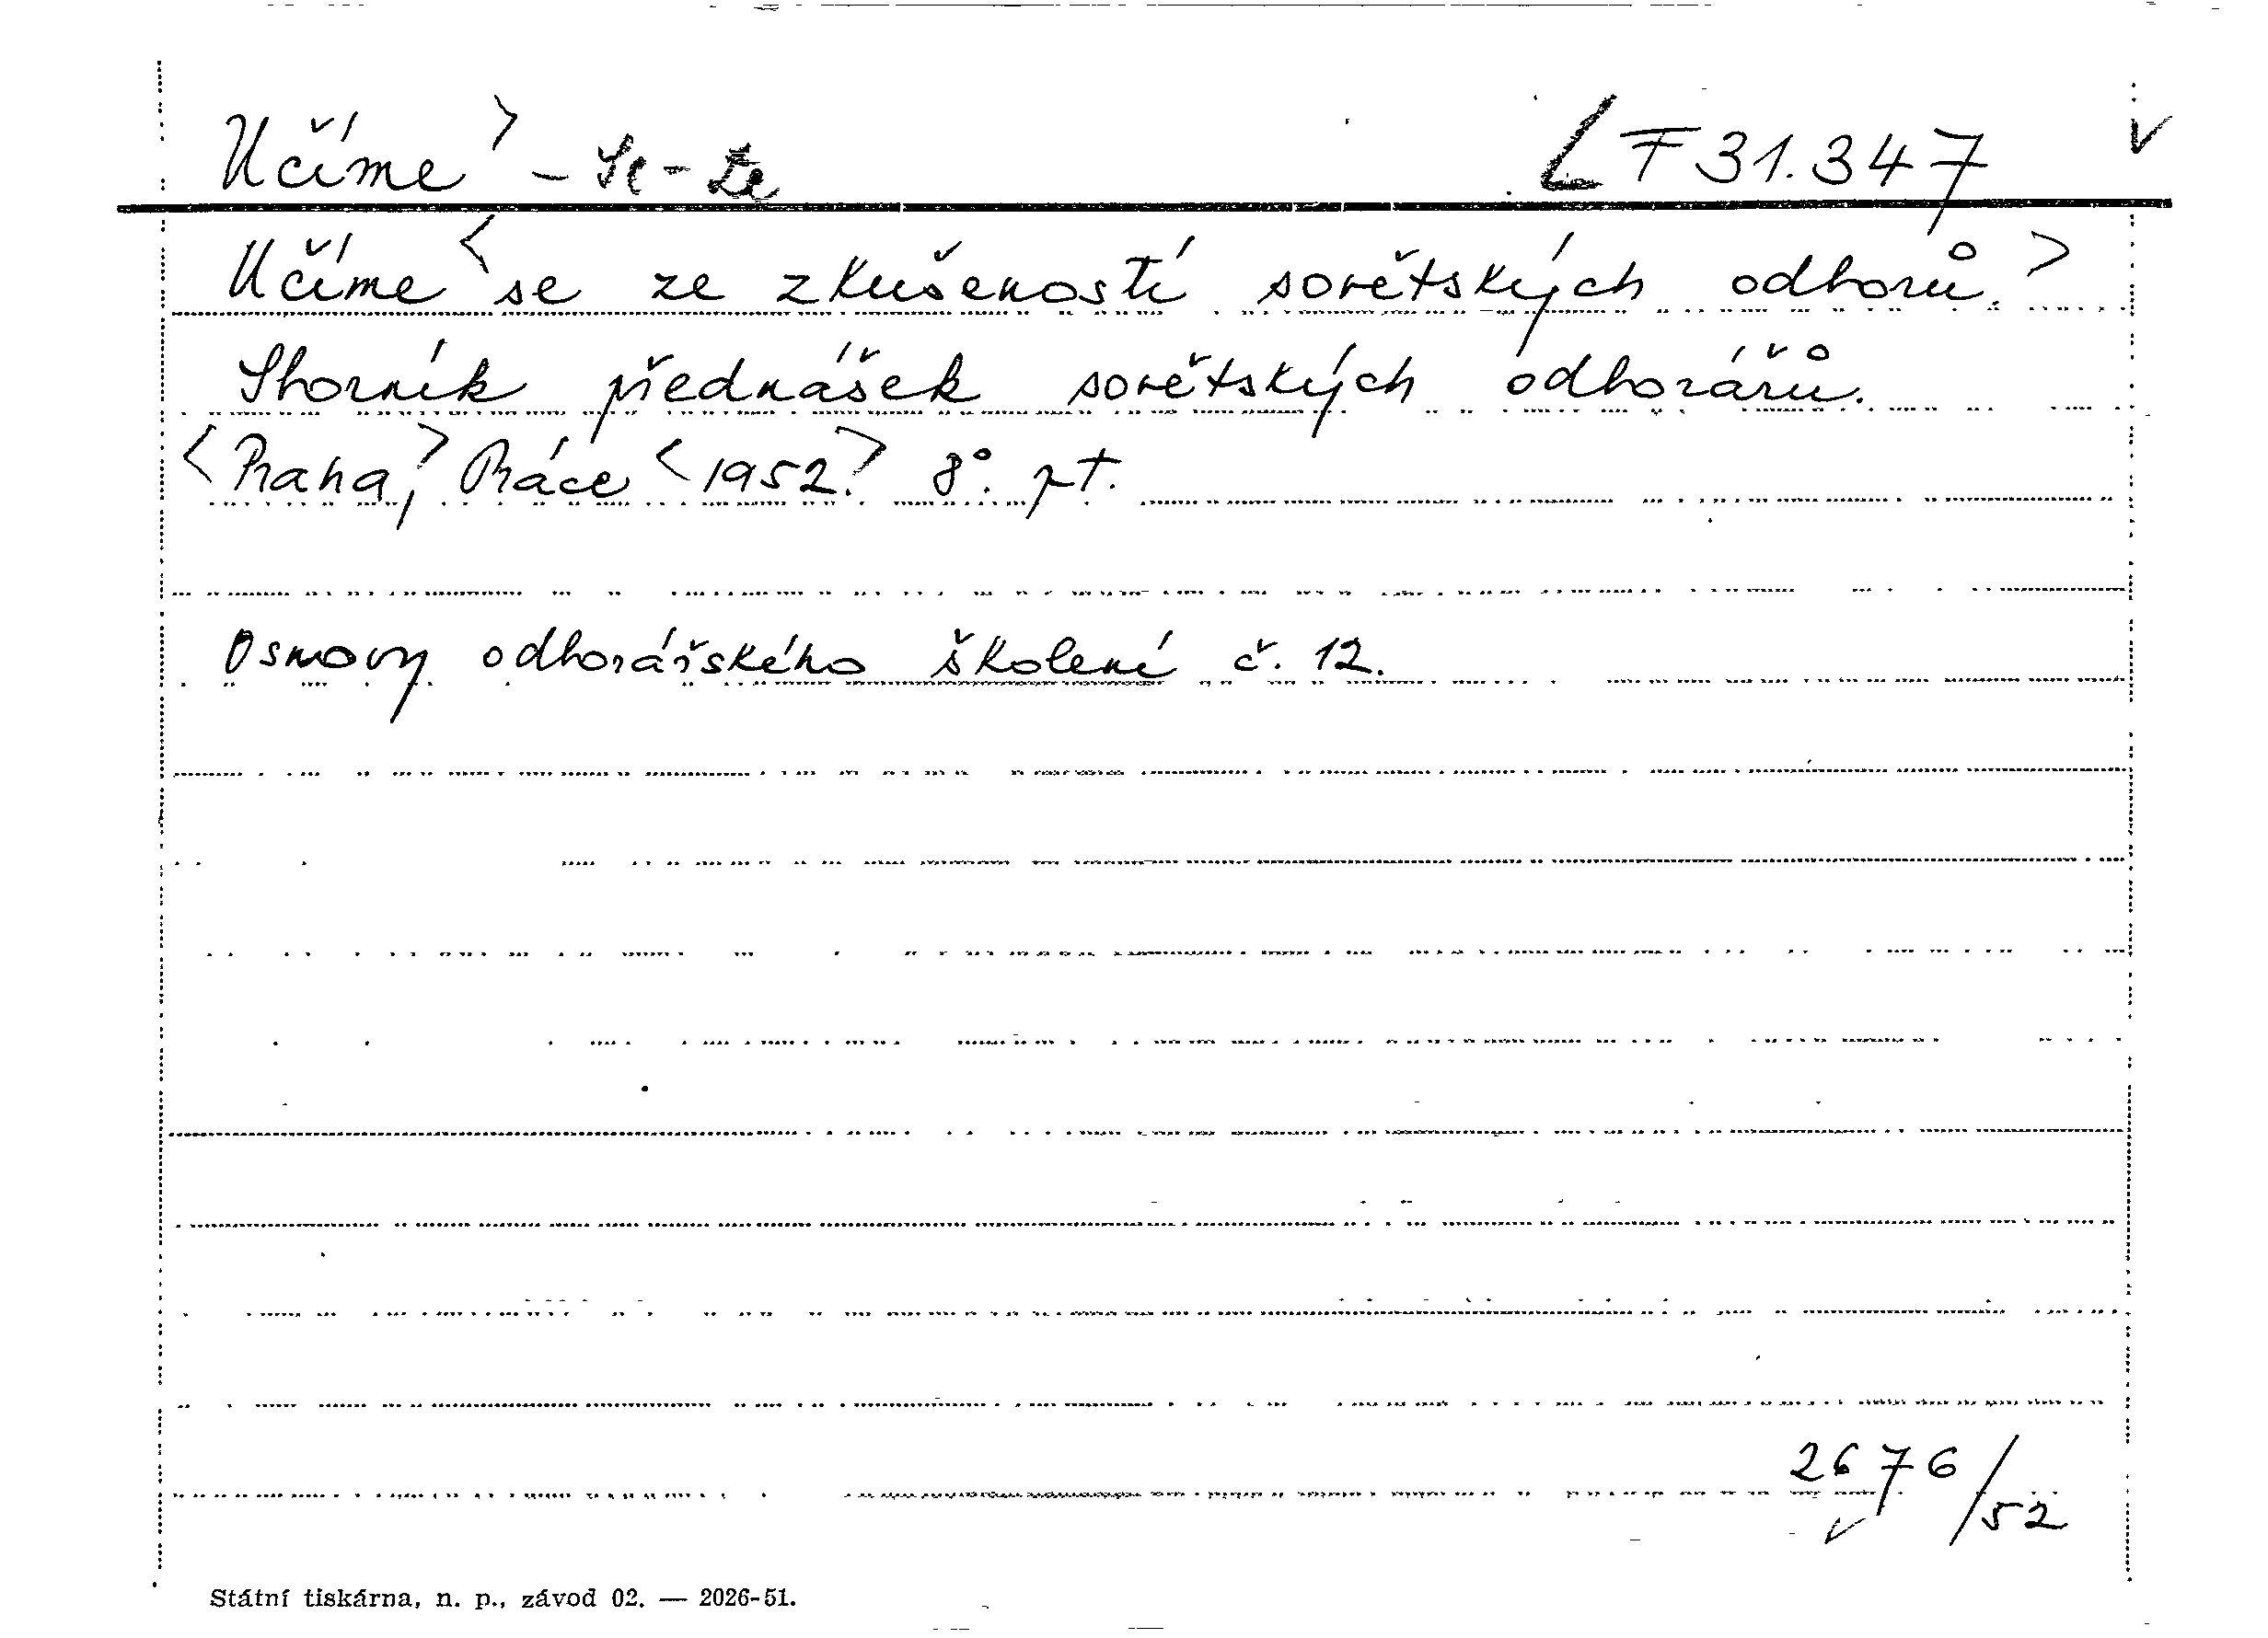 Učíme > - Se - Ze LF 31.347 v
Učíme < se ze zkušeností sovětských odborů. >
Sborník přednášek sovětských odborářů.
< Praha, > Práce < 1952. > 8°. pt.
Osnovy odborářského školení č. 12.
2676/52
v
Státní tiskárna, n. p., závod 02. — 2026-51.